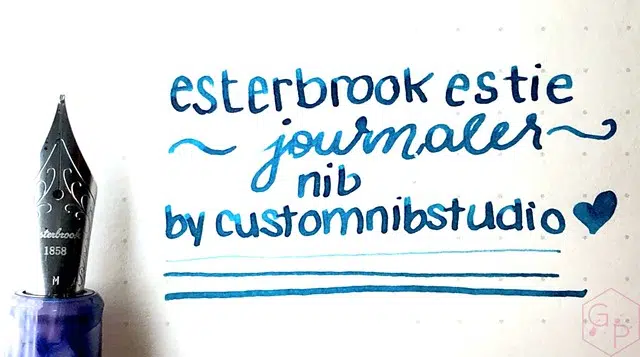 esterbrook estie
~ journaler ~
nib
by customnibstudio ♥
esterbrook
1858
M
GP